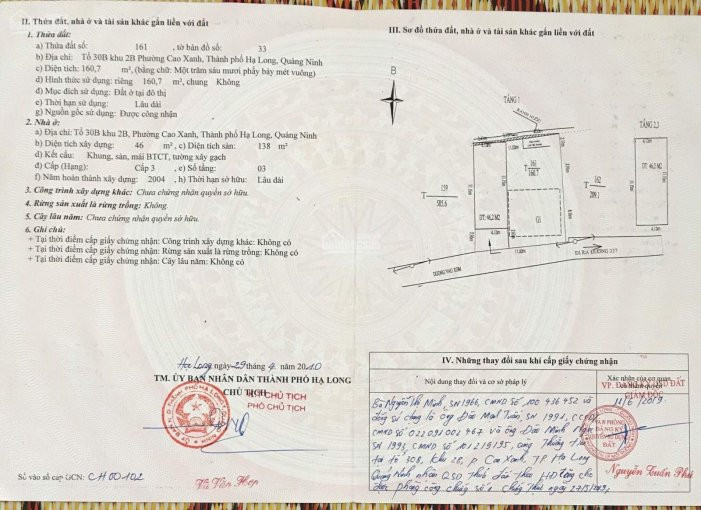 II. Thửa đất, nhà ở và tài sản khác gắn liền với đất
1. Thửa đất:
a) Thửa đất số: 161, tờ bản đồ số: 33
b) Địa chỉ: Tổ 30B khu 2B Phường Cao Xanh, Thành phố Hạ Long, Quảng Ninh
c) Diện tích: 160,7 m², (bằng chữ: Một trăm sáu mươi phẩy bảy mét vuông)
d) Hình thức sử dụng: riêng 160,7 m², chung Không
đ) Mục đích sử dụng: Đất ở tại đô thị
e) Thời hạn sử dụng: Lâu dài
g) Nguồn gốc sử dụng: Được công nhận
2. Nhà ở:
a) Địa chỉ: Tổ 30B khu 2B, Phường Cao Xanh, Thành phố Hạ Long, Quảng Ninh
b) Diện tích xây dựng: 46 m², c) Diện tích sàn: 138 m²
d) Kết cấu: Khung, sàn, mái BTCT, tường xây gạch
đ) Cấp (Hạng): Cấp 3, e) Số tầng: 03
f) Năm hoàn thành xây dựng: 2004, h) Thời hạn sở hữu: Lâu dài
3. Công trình xây dựng khác: Chưa chứng nhận quyền sở hữu.
4. Rừng sản xuất là rừng trồng: Không.
5. Cây lâu năm: Chưa chứng nhận quyền sở hữu.
6. Ghi chú:
+ Tại thời điểm cấp giấy chứng nhận: Công trình xây dựng khác: Không có
+ Tại thời điểm cấp giấy chứng nhận: Rừng sản xuất là rừng trồng: Không có
+ Tại thời điểm cấp giấy chứng nhận: Cây lâu năm: Không có
Hạ Long, ngày 29 tháng 4 năm 2010
TM. ỦY BAN NHÂN DÂN THÀNH PHỐ HẠ LONG
CHỦ TỊCH
KT. CHỦ TỊCH
PHÓ CHỦ TỊCH
Vũ Văn Hợp
Số vào sổ cấp GCN: CH 00102
III. Sơ đồ thửa đất, nhà ở và tài sản khác gắn liền với đất
B
TẦNG 1
TẦNG 2,3
T 159
585.6
T 161
160.7
T 162
209.1
DT: 46,2 M2
DT: 46,2 M2
G1
ĐI RA ĐƯỜNG 337
IV. Những thay đổi sau khi cấp giấy chứng nhận
Nội dung thay đổi và cơ sở pháp lý
Xác nhận của cơ quan
có thẩm quyền
11/6/2019
GIÁM ĐỐC
VĂN PHÒNG
ĐĂNG KÝ
QUYỀN SỬ DỤNG
ĐẤT
Bà Nguyễn Thị Minh, SN 1966, CMND Số 100 436 452 và
SN 1993, CMND số 101219195, cùng Thường Trú
tại tổ 30B, Khu 2B, p. Cao Xanh, TP Hạ Long
Nguyễn Tuấn